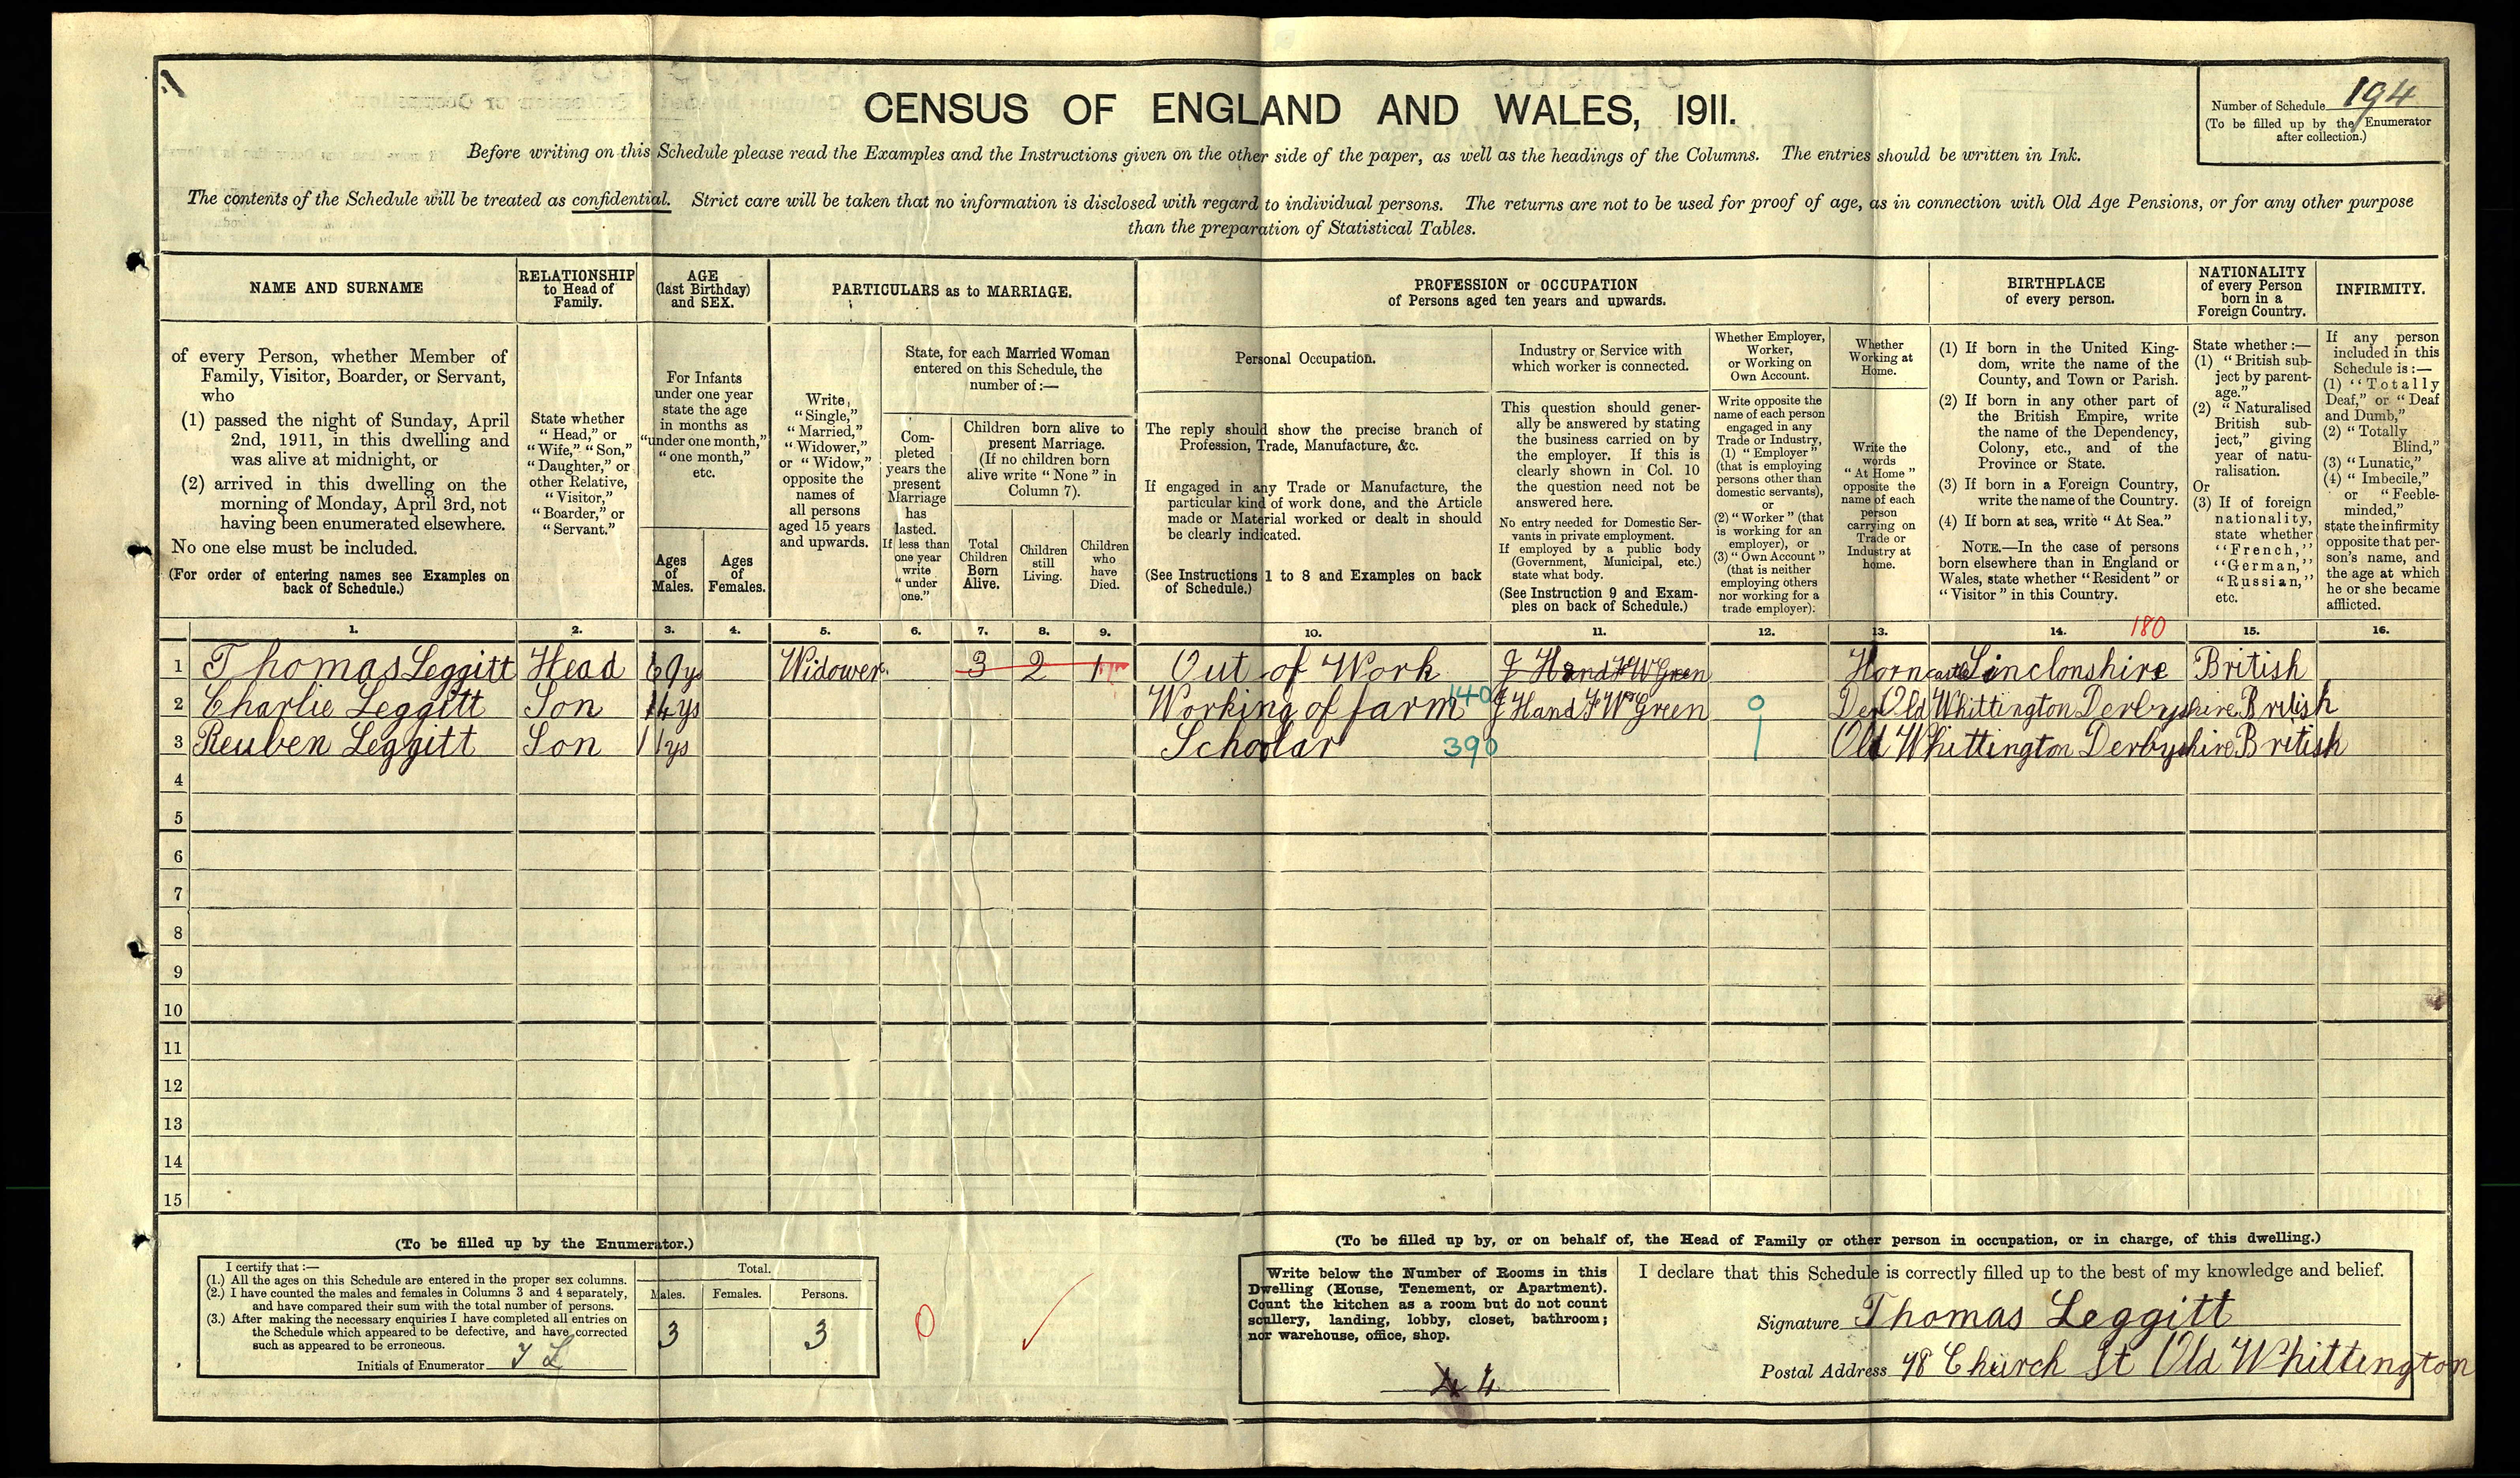 CENSUS OF ENGLAND AND WALES, 1911.
Number of Schedule 194
(To be filled up by the Enumerator
after collection.)
Before writing on this Schedule please read the Examples and the Instructions given on the other side of the paper, as well as the headings of the Columns. The entries should be written in Ink.
The contents of the Schedule will be treated as confidential. Strict care will be taken that no information is disclosed with regard to individual persons. The returns are not to be used for proof of age, as in connection with Old Age Pensions, or for any other purpose
than the preparation of Statistical Tables.
NAME AND SURNAME
of every Person, whether Member of
Family, Visitor, Boarder, or Servant,
who
(1) passed the night of Sunday, April
2nd, 1911, in this dwelling and
was alive at midnight, or
(2) arrived in this dwelling on the
morning of Monday, April 3rd, not
having been enumerated elsewhere.
No one else must be included.
(For order of entering names see Examples on
back of Schedule.)
RELATIONSHIP
to Head of
Family.
State whether
"Head," or
"Wife," "Son,"
"Daughter," or
other Relative,
"Visitor,"
"Boarder," or
"Servant."
AGE
(last Birthday)
and SEX.
For Infants
under one year
state the age
in months as
"under one month,"
"one month,"
etc.
Ages
of
Males.
Ages
of
Females.
PARTICULARS as to MARRIAGE.
Write
"Single,"
"Married,"
"Widower,"
or "Widow,"
opposite the
names of
all persons
aged 15 years
and upwards.
State, for each Married Woman
entered on this Schedule, the
number of:—
Com-
pleted
years the
present
Marriage
has
lasted.
If less than
one year
write
"under
one."
Children born alive to
present Marriage.
(If no children born
alive write "None" in
Column 7).
Total
Children
Born
Alive.
Children
still
Living.
Children
who
have
Died.
PROFESSION or OCCUPATION
of Persons aged ten years and upwards.
Personal Occupation.
The reply should show the precise branch of
Profession, Trade, Manufacture, &c.
If engaged in any Trade or Manufacture, the
particular kind of work done, and the Article
made or Material worked or dealt in should
be clearly indicated.
(See Instructions 1 to 8 and Examples on back
of Schedule.)
Industry or Service with
which worker is connected.
This question should gener-
ally be answered by stating
the business carried on by
the employer. If this is
clearly shown in Col. 10
the question need not be
answered here.
No entry needed for Domestic Ser-
vants in private employment.
If employed by a public body
(Government, Municipal, etc.)
state what body.
(See Instruction 9 and Exam-
ples on back of Schedule.)
Whether Employer,
Worker,
or Working on
Own Account.
Write opposite the
name of each person
engaged in any
Trade or Industry,
(1) "Employer"
(that is employing
persons other than
domestic servants),
or
(2) "Worker" (that
is working for an
employer), or
(3) "Own Account"
(that is neither
employing others
nor working for a
trade employer).
Whether
Working at
Home.
Write the
words
"At Home"
opposite the
name of each
person
carrying on
Trade or
Industry at
home.
BIRTHPLACE
of every person.
(1) If born in the United King-
dom, write the name of the
County, and Town or Parish.
(2) If born in any other part of
the British Empire, write
the name of the Dependency,
Colony, etc., and of the
Province or State.
(3) If born in a Foreign Country,
write the name of the Country.
(4) If born at sea, write "At Sea."
NOTE.—In the case of persons
born elsewhere than in England or
Wales, state whether "Resident" or
"Visitor" in this Country.
NATIONALITY
of every Person
born in a
Foreign Country.
State whether :—
(1) "British sub-
ject by parent-
age."
(2) "Naturalised
British sub-
ject," giving
year of natu-
ralisation.
Or
(3) If of foreign
nationality,
state whether
"French,"
"German,"
"Russian,"
etc.
INFIRMITY.
If any person
included in this
Schedule is:—
(1) "Totally
Deaf," or "Deaf
and Dumb,"
(2) "Totally
Blind,"
(3) "Lunatic,"
(4) "Imbecile,"
or "Feeble-
minded,"
state the infirmity
opposite that per-
son's name, and
the age at which
he or she became
afflicted.
1. 2. 3. 4. 5. 6. 7. 8. 9. 10. 11. 12. 13. 14. 180 15. 16.
1 Thomas Leggitt Head 69ys Widower 3 2 1 Out of Work J Hand F W Green Horncastle Linclonshire British
2 Charlie Leggitt Son 14ys Working of farm 140 J Hand F W Green 0 Der Old Whittington Derbyshire British
3 Reuben Leggitt Son 11ys Schoolar 390 1 Old Whittington Derbyshire British
4
5
6
7
8
9
10
11
12
13
14
15
(To be filled up by the Enumerator.)
I certify that:—
(1.) All the ages on this Schedule are entered in the proper sex columns.
(2.) I have counted the males and females in Columns 3 and 4 separately,
and have compared their sum with the total number of persons.
(3.) After making the necessary enquiries I have completed all entries on
the Schedule which appeared to be defective, and have corrected
such as appeared to be erroneous.
Initials of Enumerator
Total.
Males. Females. Persons.
3 3
0
(To be filled up by, or on behalf of, the Head of Family or other person in occupation, or in charge, of this dwelling.)
Write below the Number of Rooms in this
Dwelling (House, Tenement, or Apartment).
Count the kitchen as a room but do not count
scullery, landing, lobby, closet, bathroom;
nor warehouse, office, shop.
4 4
I declare that this Schedule is correctly filled up to the best of my knowledge and belief.
Signature Thomas Leggitt
Postal Address 48 Church St Old Whittington